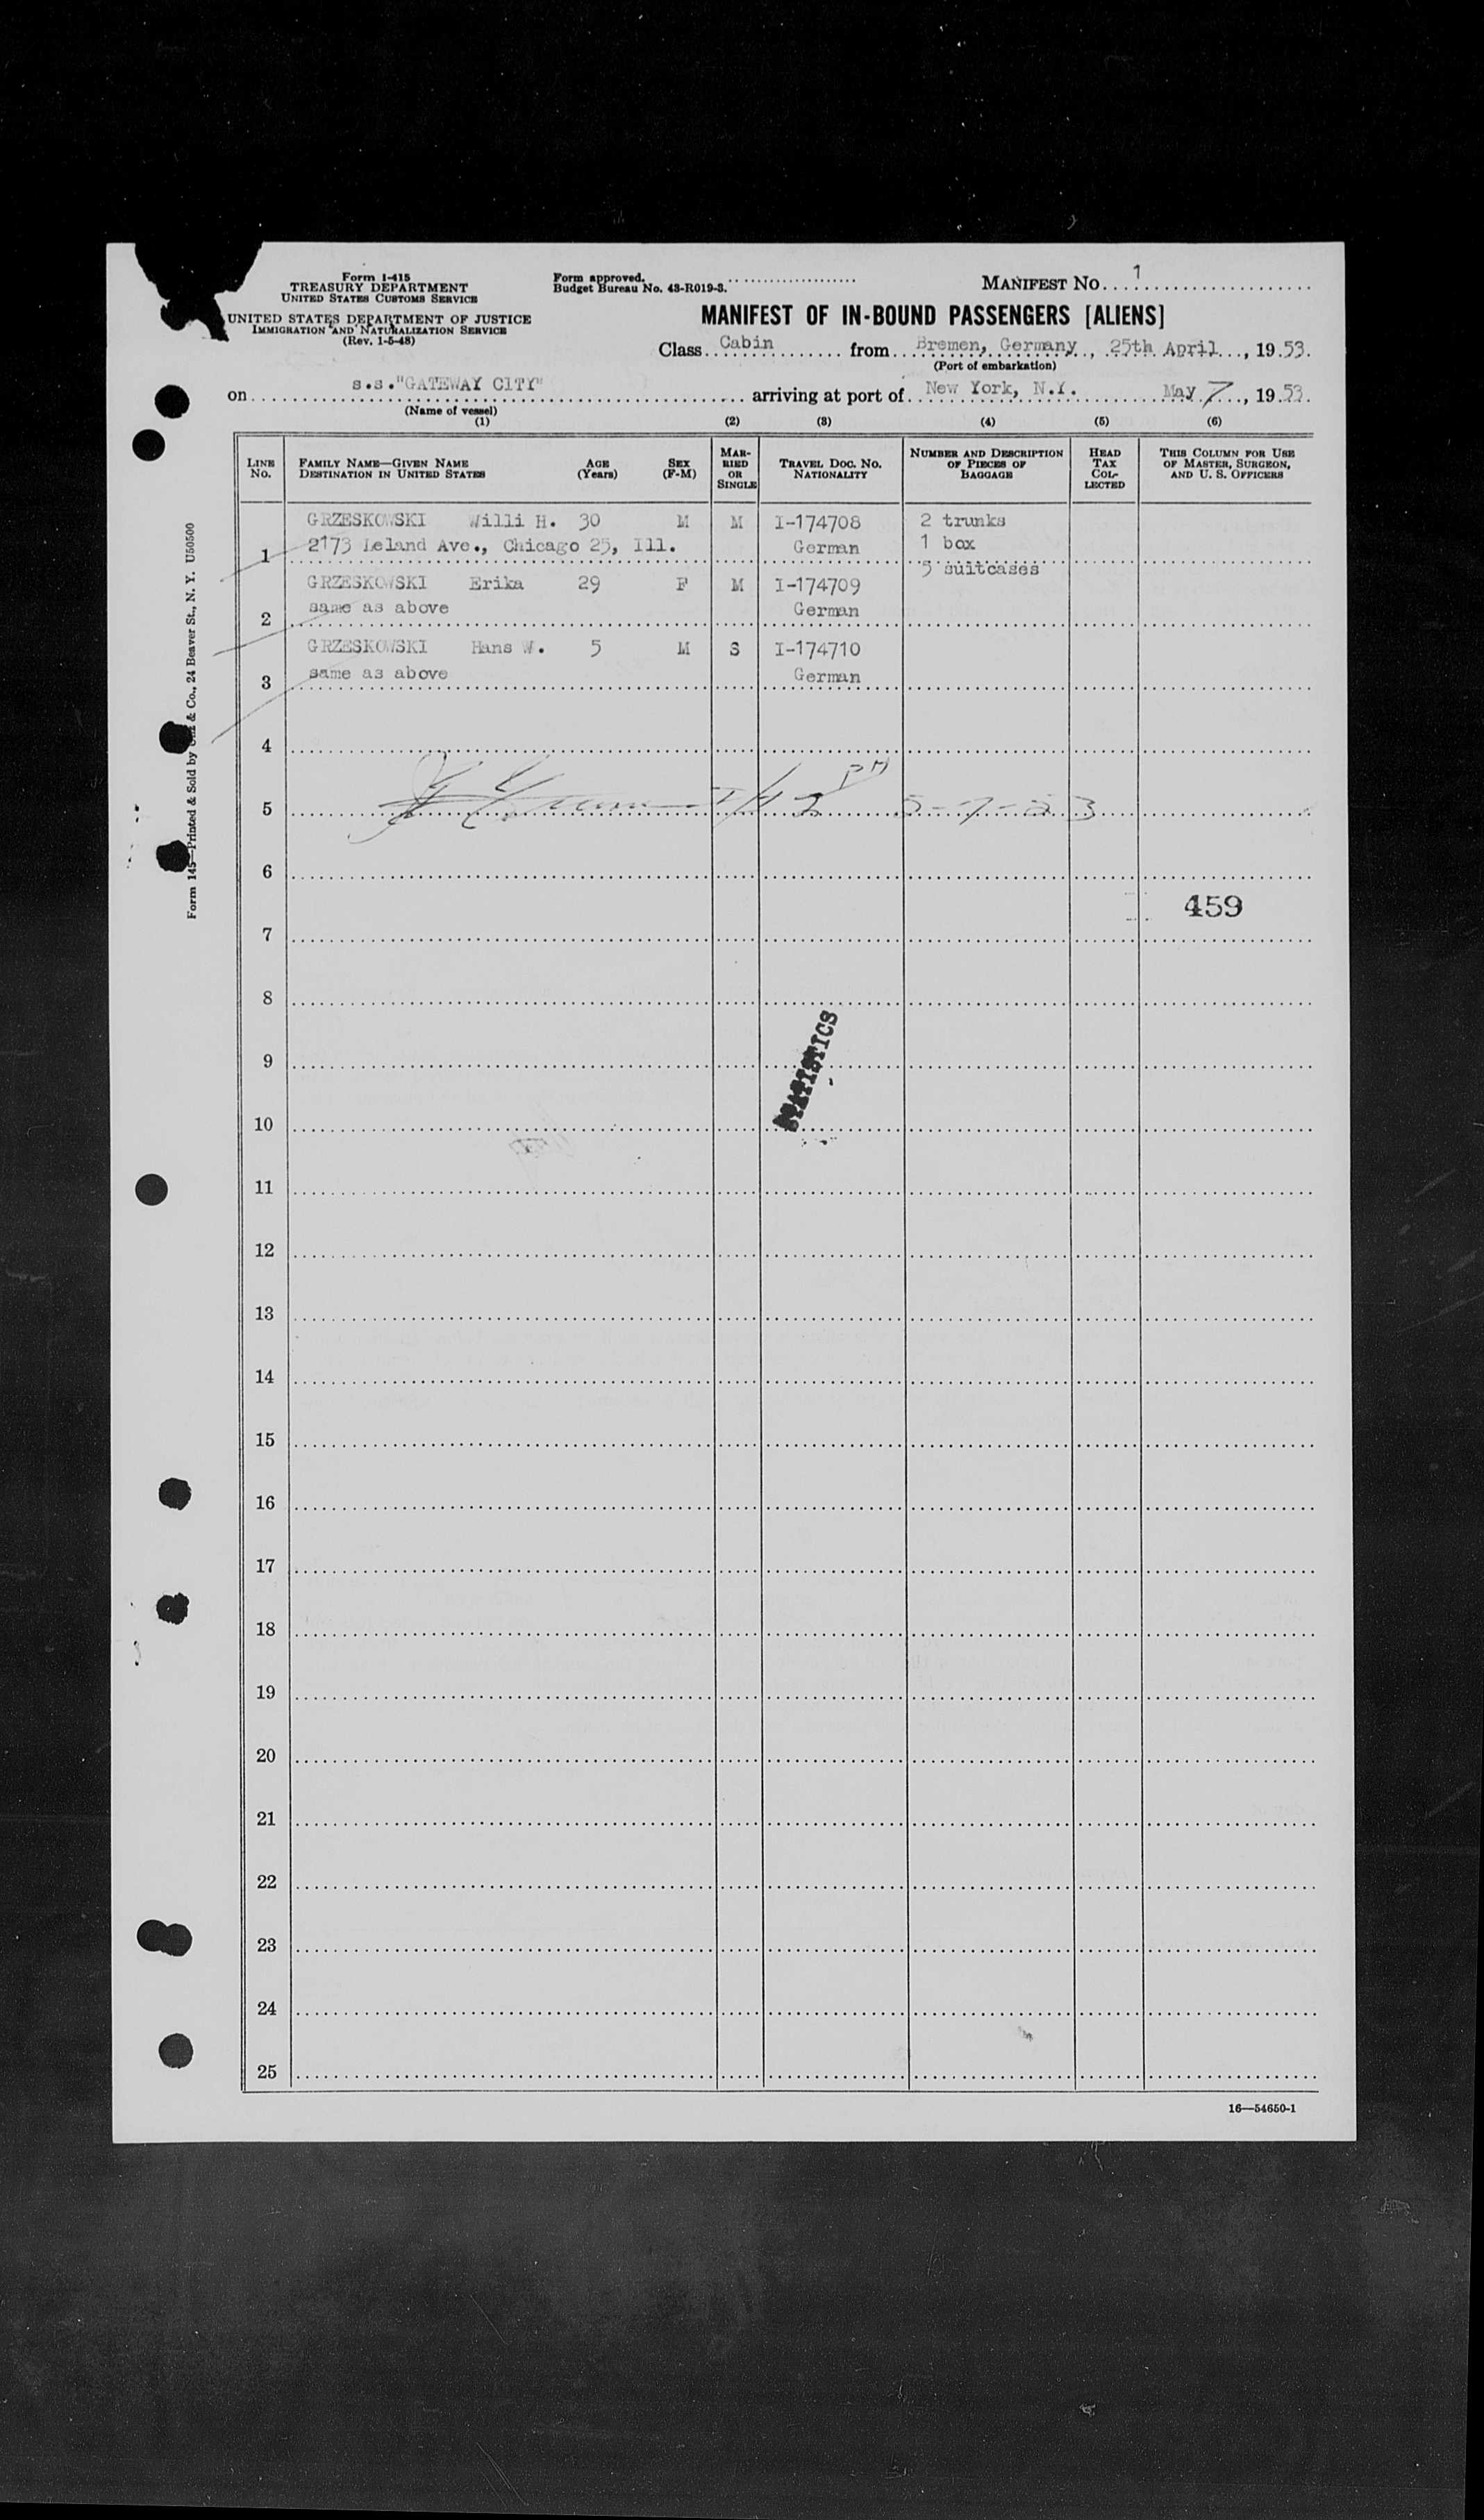 Form I-415
TREASURY DEPARTMENT
UNITED STATES CUSTOMS SERVICE
UNITED STATES DEPARTMENT OF JUSTICE
IMMIGRATION AND NATURALIZATION SERVICE
(Rev. 1-5-48)
Form approved.
Budget Bureau No. 43-R019-3.
MANIFEST No. 1
MANIFEST OF IN-BOUND PASSENGERS [ALIENS]
Class Cabin from Bremen, Germany, 25th April, 1953.
(Port of embarkation)
on s.s."GATEWAY CITY" arriving at port of New York, N.Y. May 7, 1953.
(Name of vessel)
(1) (2) (3) (4) (5) (6)
LINE No. FAMILY NAME—GIVEN NAME DESTINATION IN UNITED STATES AGE (Years) SEX (F-M) MARRIED OR SINGLE TRAVEL DOC. NO. NATIONALITY NUMBER AND DESCRIPTION OF PIECES OF BAGGAGE HEAD TAX COLLECTED THIS COLUMN FOR USE OF MASTER, SURGEON, AND U. S. OFFICERS
GRZESKOWSKI Willi H. 30 M M I-174708 2 trunks
1 2173 Leland Ave., Chicago 25, Ill. German 1 box
5 suitcases
GRZESKOWSKI Erika 29 F M I-174709
2 same as above German
GRZESKOWSKI Hans W. 5 M S I-174710
3 same as above German
4
5 5-7-53
6
459
7
8
9
STATISTICS
10
11
12
13
14
15
16
17
18
19
20
21
22
23
24
25
16—54650-1
Form 145—Printed & Sold by & Co., 24 Beaver St., N. Y. U50500